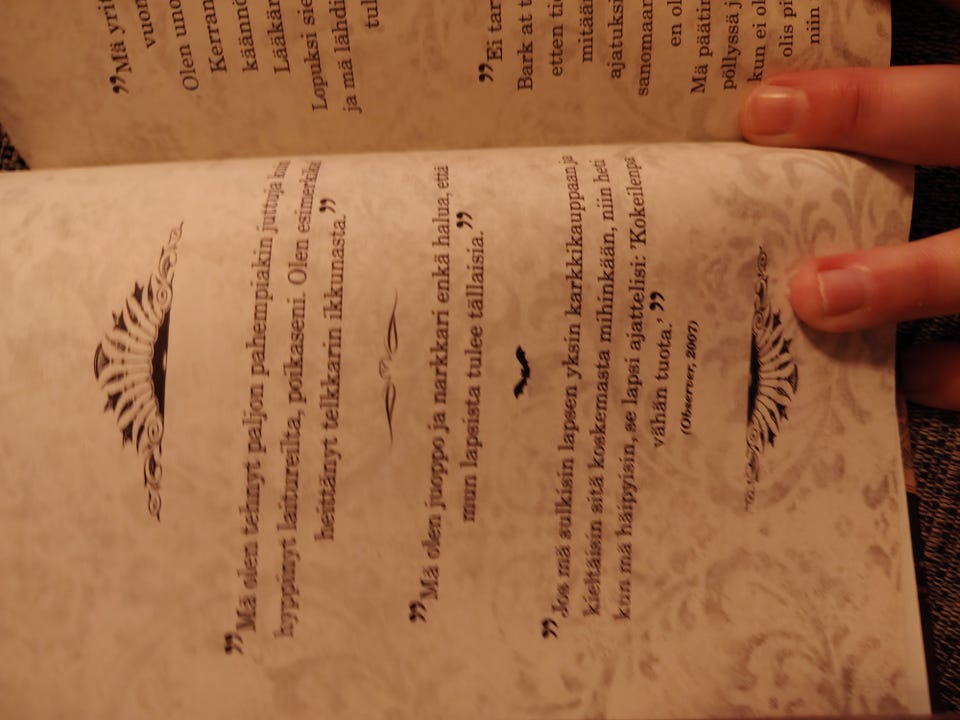 ”Mä yrit
vuon
Olen uno
Kerran
käännö
Lääkär
Lopuksi sie
ja mä lähdi
tul
”Ei tar
Bark at t
etten tie
mitään
ajatuksi
sanomaan
en ol
Mä päätin
pöllyssä j
kun ei ol
olis pi
niin
”Mä olen tehnyt paljon pahempiakin juttuja kuin
hyppinyt laitureilta, poikaseni. Olen esimerkiksi
heittänyt telkkarin ikkunasta.”
”Mä olen juoppo ja narkkari enkä halua, että
mun lapsista tulee tällaisia.”
”Jos mä sulkisin lapsen yksin karkkikauppaan ja
kieltäisin sitä koskemasta mihinkään, niin heti
kun mä häipyisin, se lapsi ajattelisi: ’Kokeilenpa
vähän tuota.’ ”
(Observer, 2007)